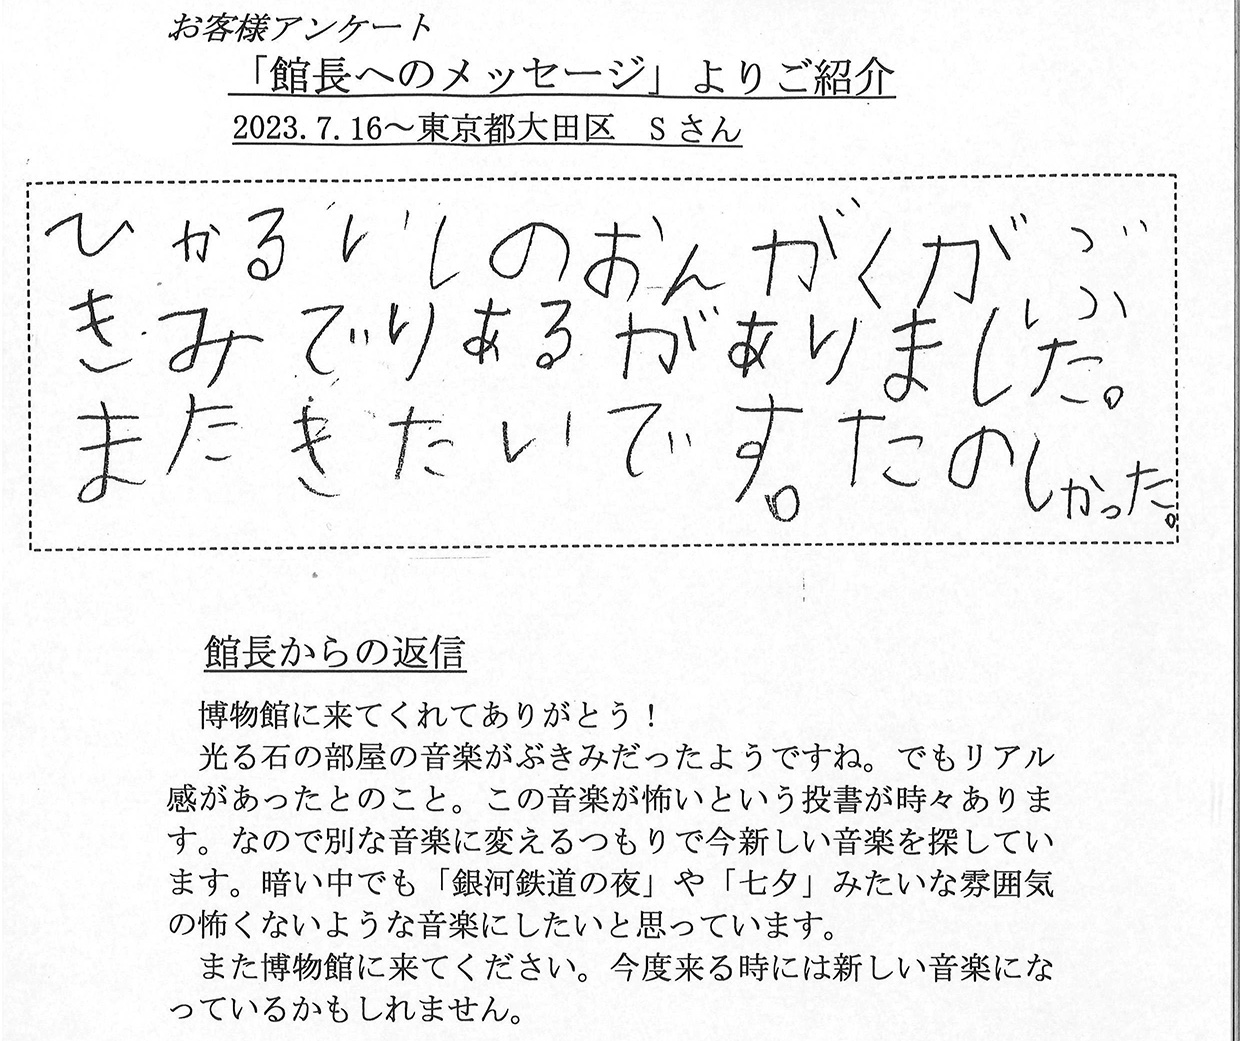 お客様アンケート
「館長へのメッセージ」よりご紹介
2023.7.16～東京都大田区　Sさん
ひかるいしのおんがくがぶ
きみでりあるがありました。
またきたいです。たのしかった。
館長からの返信
博物館に来てくれてありがとう！
光る石の部屋の音楽がぶきみだったようですね。でもリアル
感があったとのこと。この音楽が怖いという投書が時々ありま
す。なので別な音楽に変えるつもりで今新しい音楽を探してい
ます。暗い中でも「銀河鉄道の夜」や「七夕」みたいな雰囲気
の怖くないような音楽にしたいと思っています。
また博物館に来てください。今度来る時には新しい音楽にな
っているかもしれません。